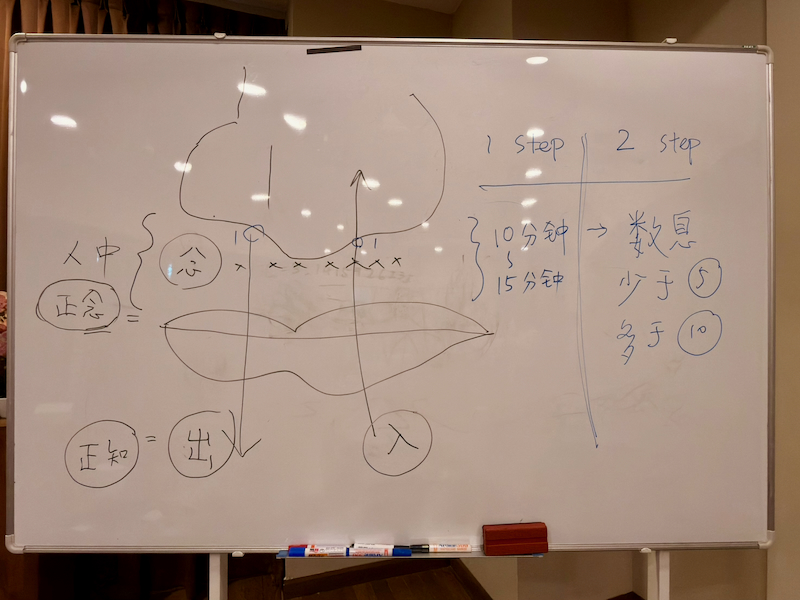 1 step 2 step
人中 念
正念 =
正知 = 出 入
10分钟 → 数息
15分钟 少于 5
多于 10